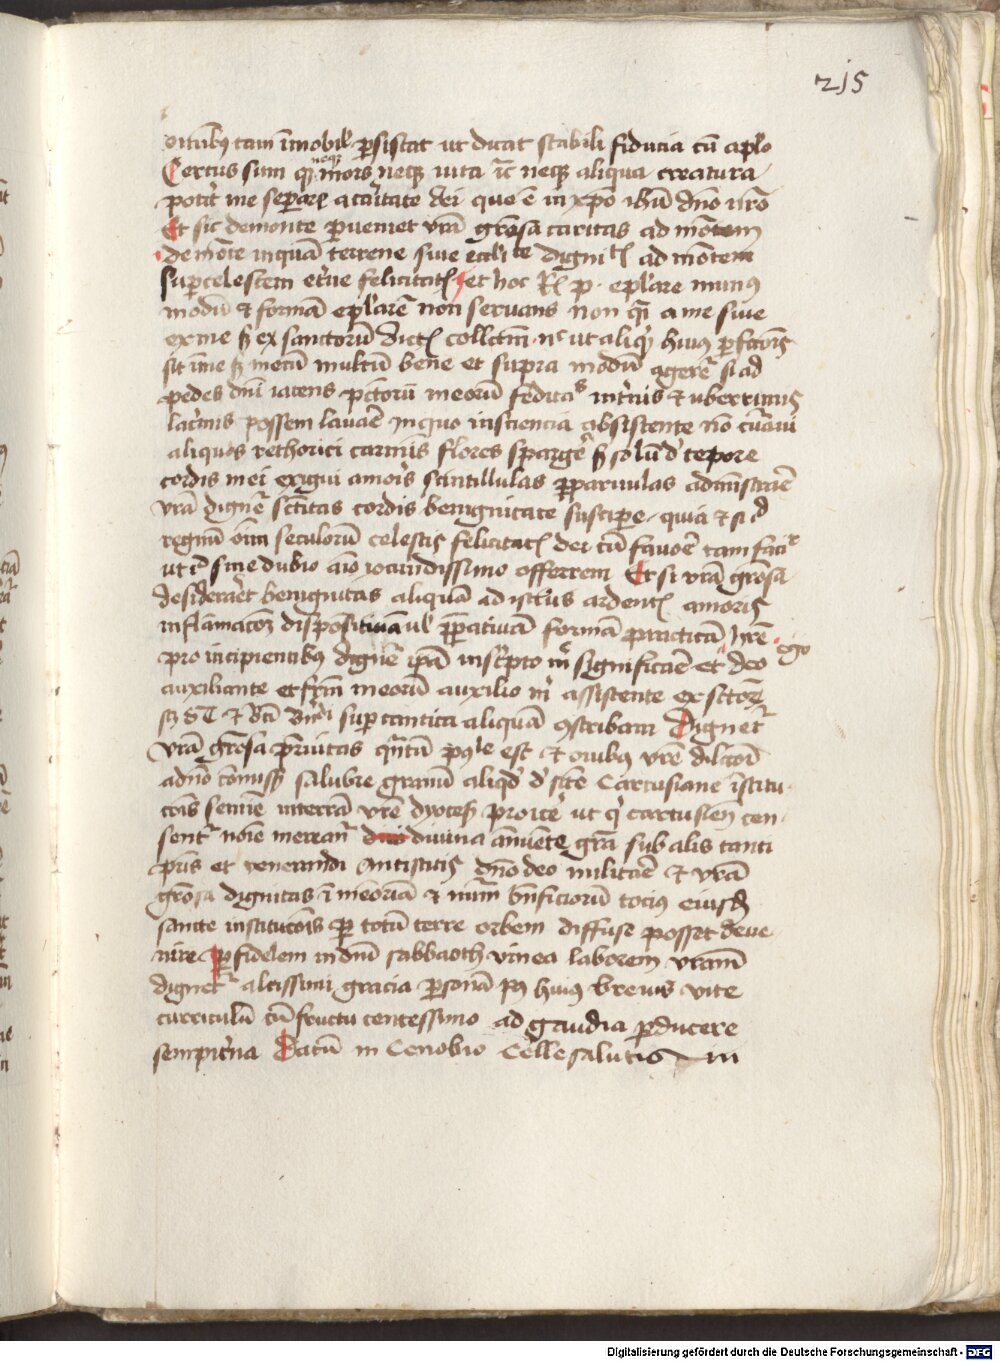 215
virtutibus tam īmobilr p̄sistat ut dicat stabili fiducia cū aplo
Certus sum qꝫ neqꝫ mors neqꝫ vita rc neqꝫ aliqua creatura
potit me separare a caritate dei que ē in xpo ihū dno nr̄o
Et sic de monte perveniet vr̄a gr̄osa caritas ad mōtem
de mōte inquā terrene sive eccliastice dignitatis ad mōtem
supcelestem et̄ne felicitatis et hoc p. eplare munus
modū & formā eplarē non servans non qꝫ a me sive
ex me sꝫ ex sanctorū dictis collectm nec ut aliqꝫ huius pfcōis
sit in me sꝫ mecū multū bene et supra modū agerer si ad
pedes dni iacens pctorū meorū feditatis int̄nis & uberrimis
lacr̄mis possem lavare in quo insciencia obsistente nō curavi
aliquos rethorici carminis flores spargere sꝫ solū de tepore
cordis mei exigui amoris scintillulas pparvulas administrare
vr̄a dignet sctitas cordis benignitate suscipe quia & si ad
regnū oīm seculorū celestis felicitatis dei cū favore tam facil
ut sine dubio aīo iocundissimo offerrem Et si vr̄a gr̄osa
desideraret benignitas aliquā ad istius ardentis amoris
inflāmacoꝫ dispositivam vel ppativā formā practicā hr̄e ego
pro incipientibus dignet ipā inscripto mꝫ significare et deo
auxiliante et frm̄ meorū auxilio mꝫ assistente ex sctorꝫ
sup cantica aliquā ꝯscribam Dignetr
vr̄a gr̄osa pr̄nitas quātū possibile est & ovibus vr̄e dilcōi
a dnō cōmissis salubre granū aliqd de scē Cartusiane īstitu
cōis semine in terrā vr̄e dyocesis proicere ut qꝫ cartusien cen
sentr noīe mereantr divina ānuente gr̄a sub alis tanti
pr̄is et venerandi Antistitis dn̄o deo militare & vr̄a
gr̄osa dignitas ī meoriā & nūm bn̄ficiorū tocius eiusdꝫ
sancte institucōis p totū terre orbem diffuse posset deve
nire p fidelem in dnī sabbaoth vinea laborem vram
dignetr altissimi gracia psonā pꝫ huius brevis vite
curriculū cū fructu centessimo ad gaudia pducere
sempiterna Datū in Cenobio Celle salutis in
Digitalisierung gefördert durch die Deutsche Forschungsgemeinschaft - DFG